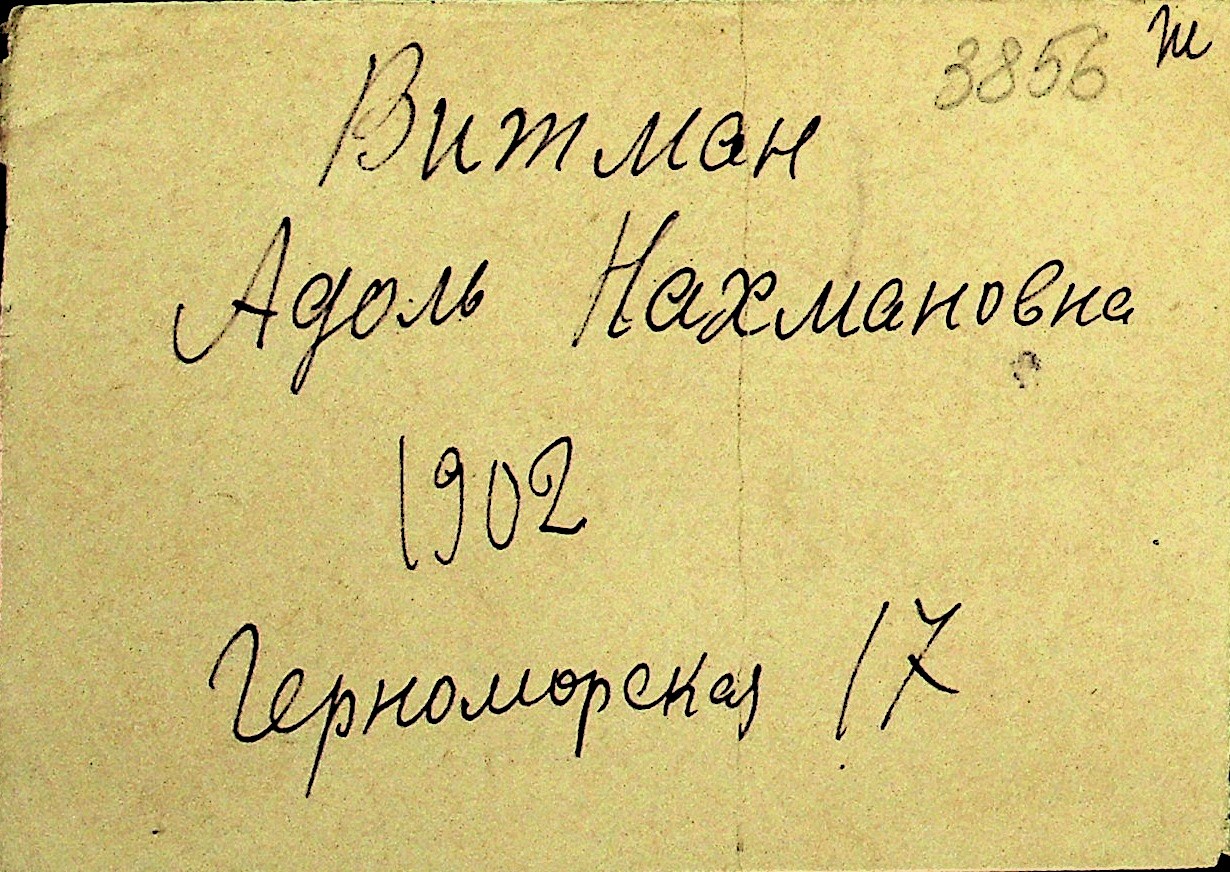 3856 ж
Витман
Адоль Нахмановна
1902
Черноморская 17